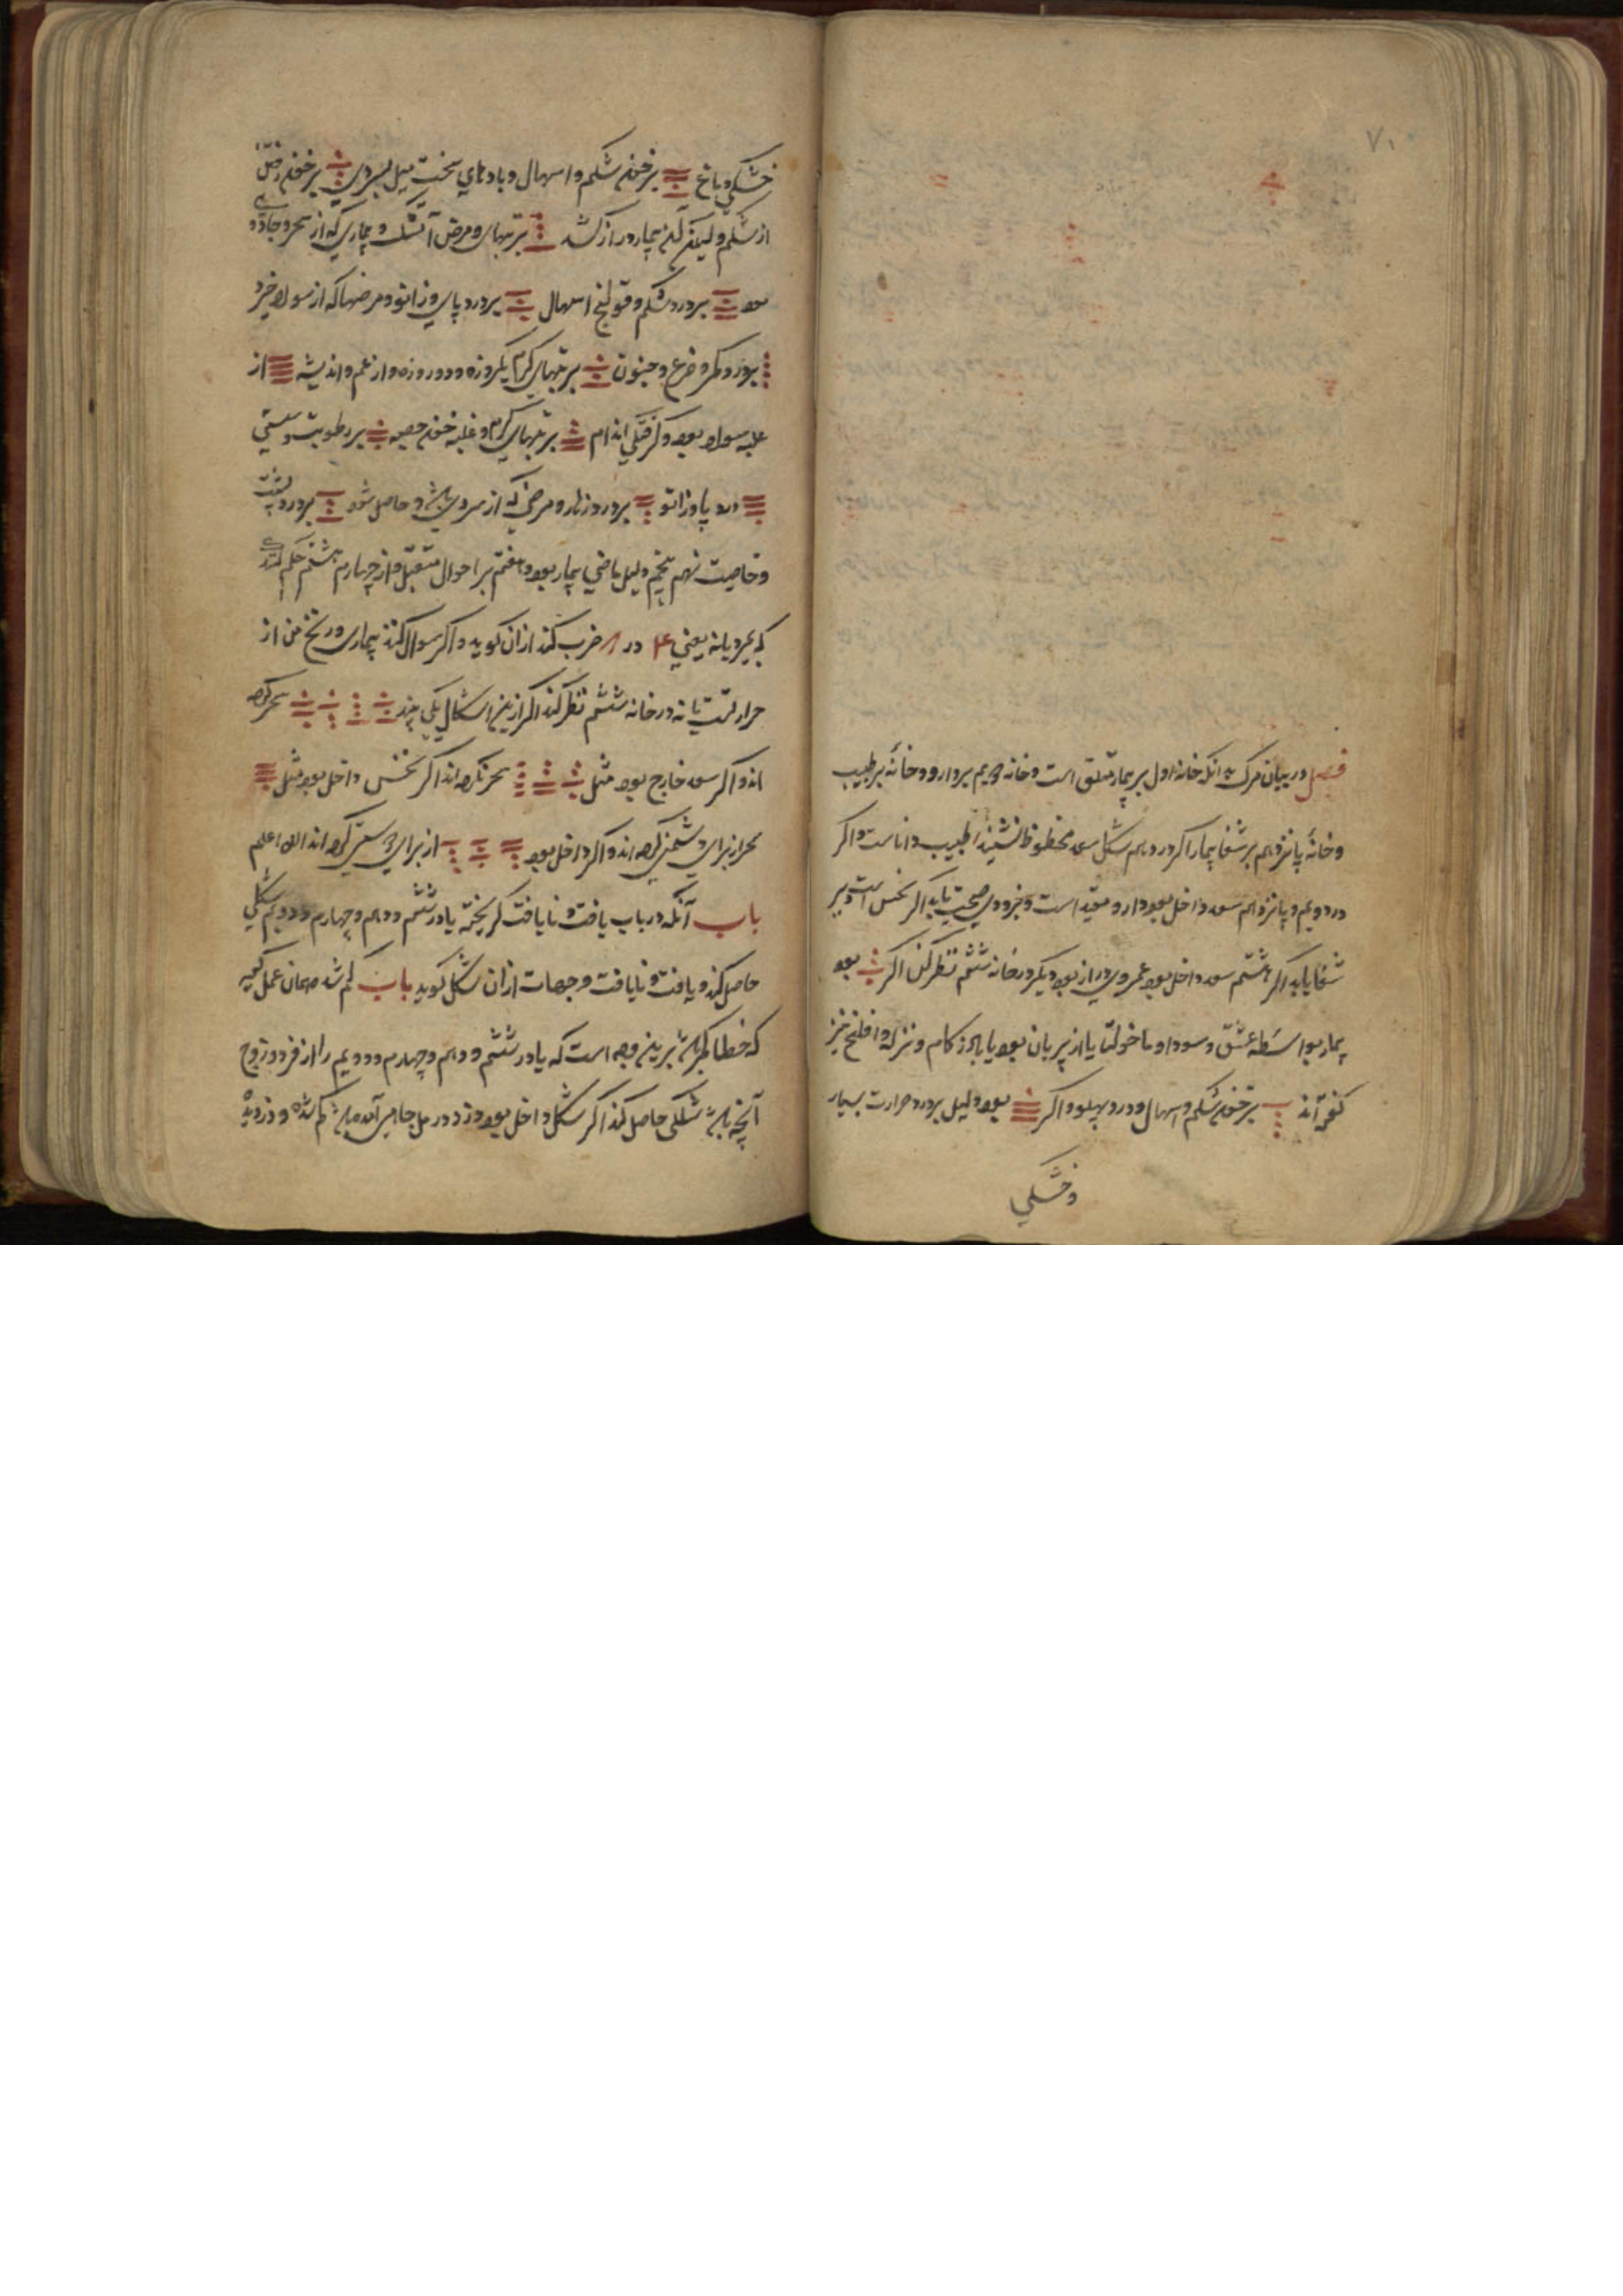 ۷۱
فصل در بیان مرک بدانکه خانه اول بر بیمار متعلق است و خانه دویم بر دارو و خانهٔ بر طبیب
و خانهٔ پانزدهم بر شفا بیمار اکر در دهم شکل سعد محظوظ نشیند طبیب داناست و اکر
در دویم و پانزدهم سعد داخل بود دارو مفید است و بزودی صحت یابد اکر نحس است دیر
شفا یابد اکر هشتم سعد داخل بود عمر وی دراز بود دیکر در خانه ششم نظر کن اکر بود
بیمار بواسطه عشق و سودا و ماخولیا یا از پریان بود یا باد زکام و نزله و افلنج نیز
کفته‌اند بر خون شکم و اسهال و درد پهلو و اکر بود دلیل بر درد حرارت بسیار
و خشکی
خشکی دماغ بر خون شکم و اسهال و بادهای سخت میل بسردی بر خون رفتن
از شکم ولیکن بیمار دراز کشد بر تبهای و مرض آتشک و بیماری که از سحر و جادوی
بود بر درد شکم و قولنج اسهال بر درد پای و زانو و مرضها که از سودا خیزد
بر درد کمر و صرع و جنون بر تبهای کرم یکروزه و دو روزه و از غم و اندیشه از
غلبه سودا بود و کرفتکی اندام بر تبهای کرم و غلبه خون حصبه بر رطوبت و سستی
درد پا و زانو بر درد زهار و مرضی که از سردی باشد و حاصل شود بر درد پشت
و خاصیت نهم پنجم دلیل ماضی بیمار بود و هفتم بر احوال مستقبل و از چهارم هشتم حکم کنند
که بمیرد یا نه یعنی ۴ در ۸ ضرب کند از آن کوید و اکر سوال کنند بیماری و رنج من از
حرارتست یا نه در خانه ششم نظر کند اکر ازین اشکال یکی بیند سحر کرده
اند و اکر سعد خارج بود مثل سحر نکرده اند اکر نحس داخل بود مثل
سحر از برای دشمنی کرده اند و اکر داخل بود از برای دوستی کرده اند الله اعلم
باب آنکه در باب یافت و نایافت کریخته یا در ششم و دهم و چهارم و دویم شکلی
حاصل کند و یافت و نایافت و جهات از آن شکل کوید باب کم شده همان عمل کند
که خطا باشد برین وجه است که یا در ششم و دهم و چهارم و دویم را از فرد و زوج
آنچه باشد شکلی حاصل کند اکر شکل داخل بود دزد در مل جایی آمده باشد کم شده و دزدیده